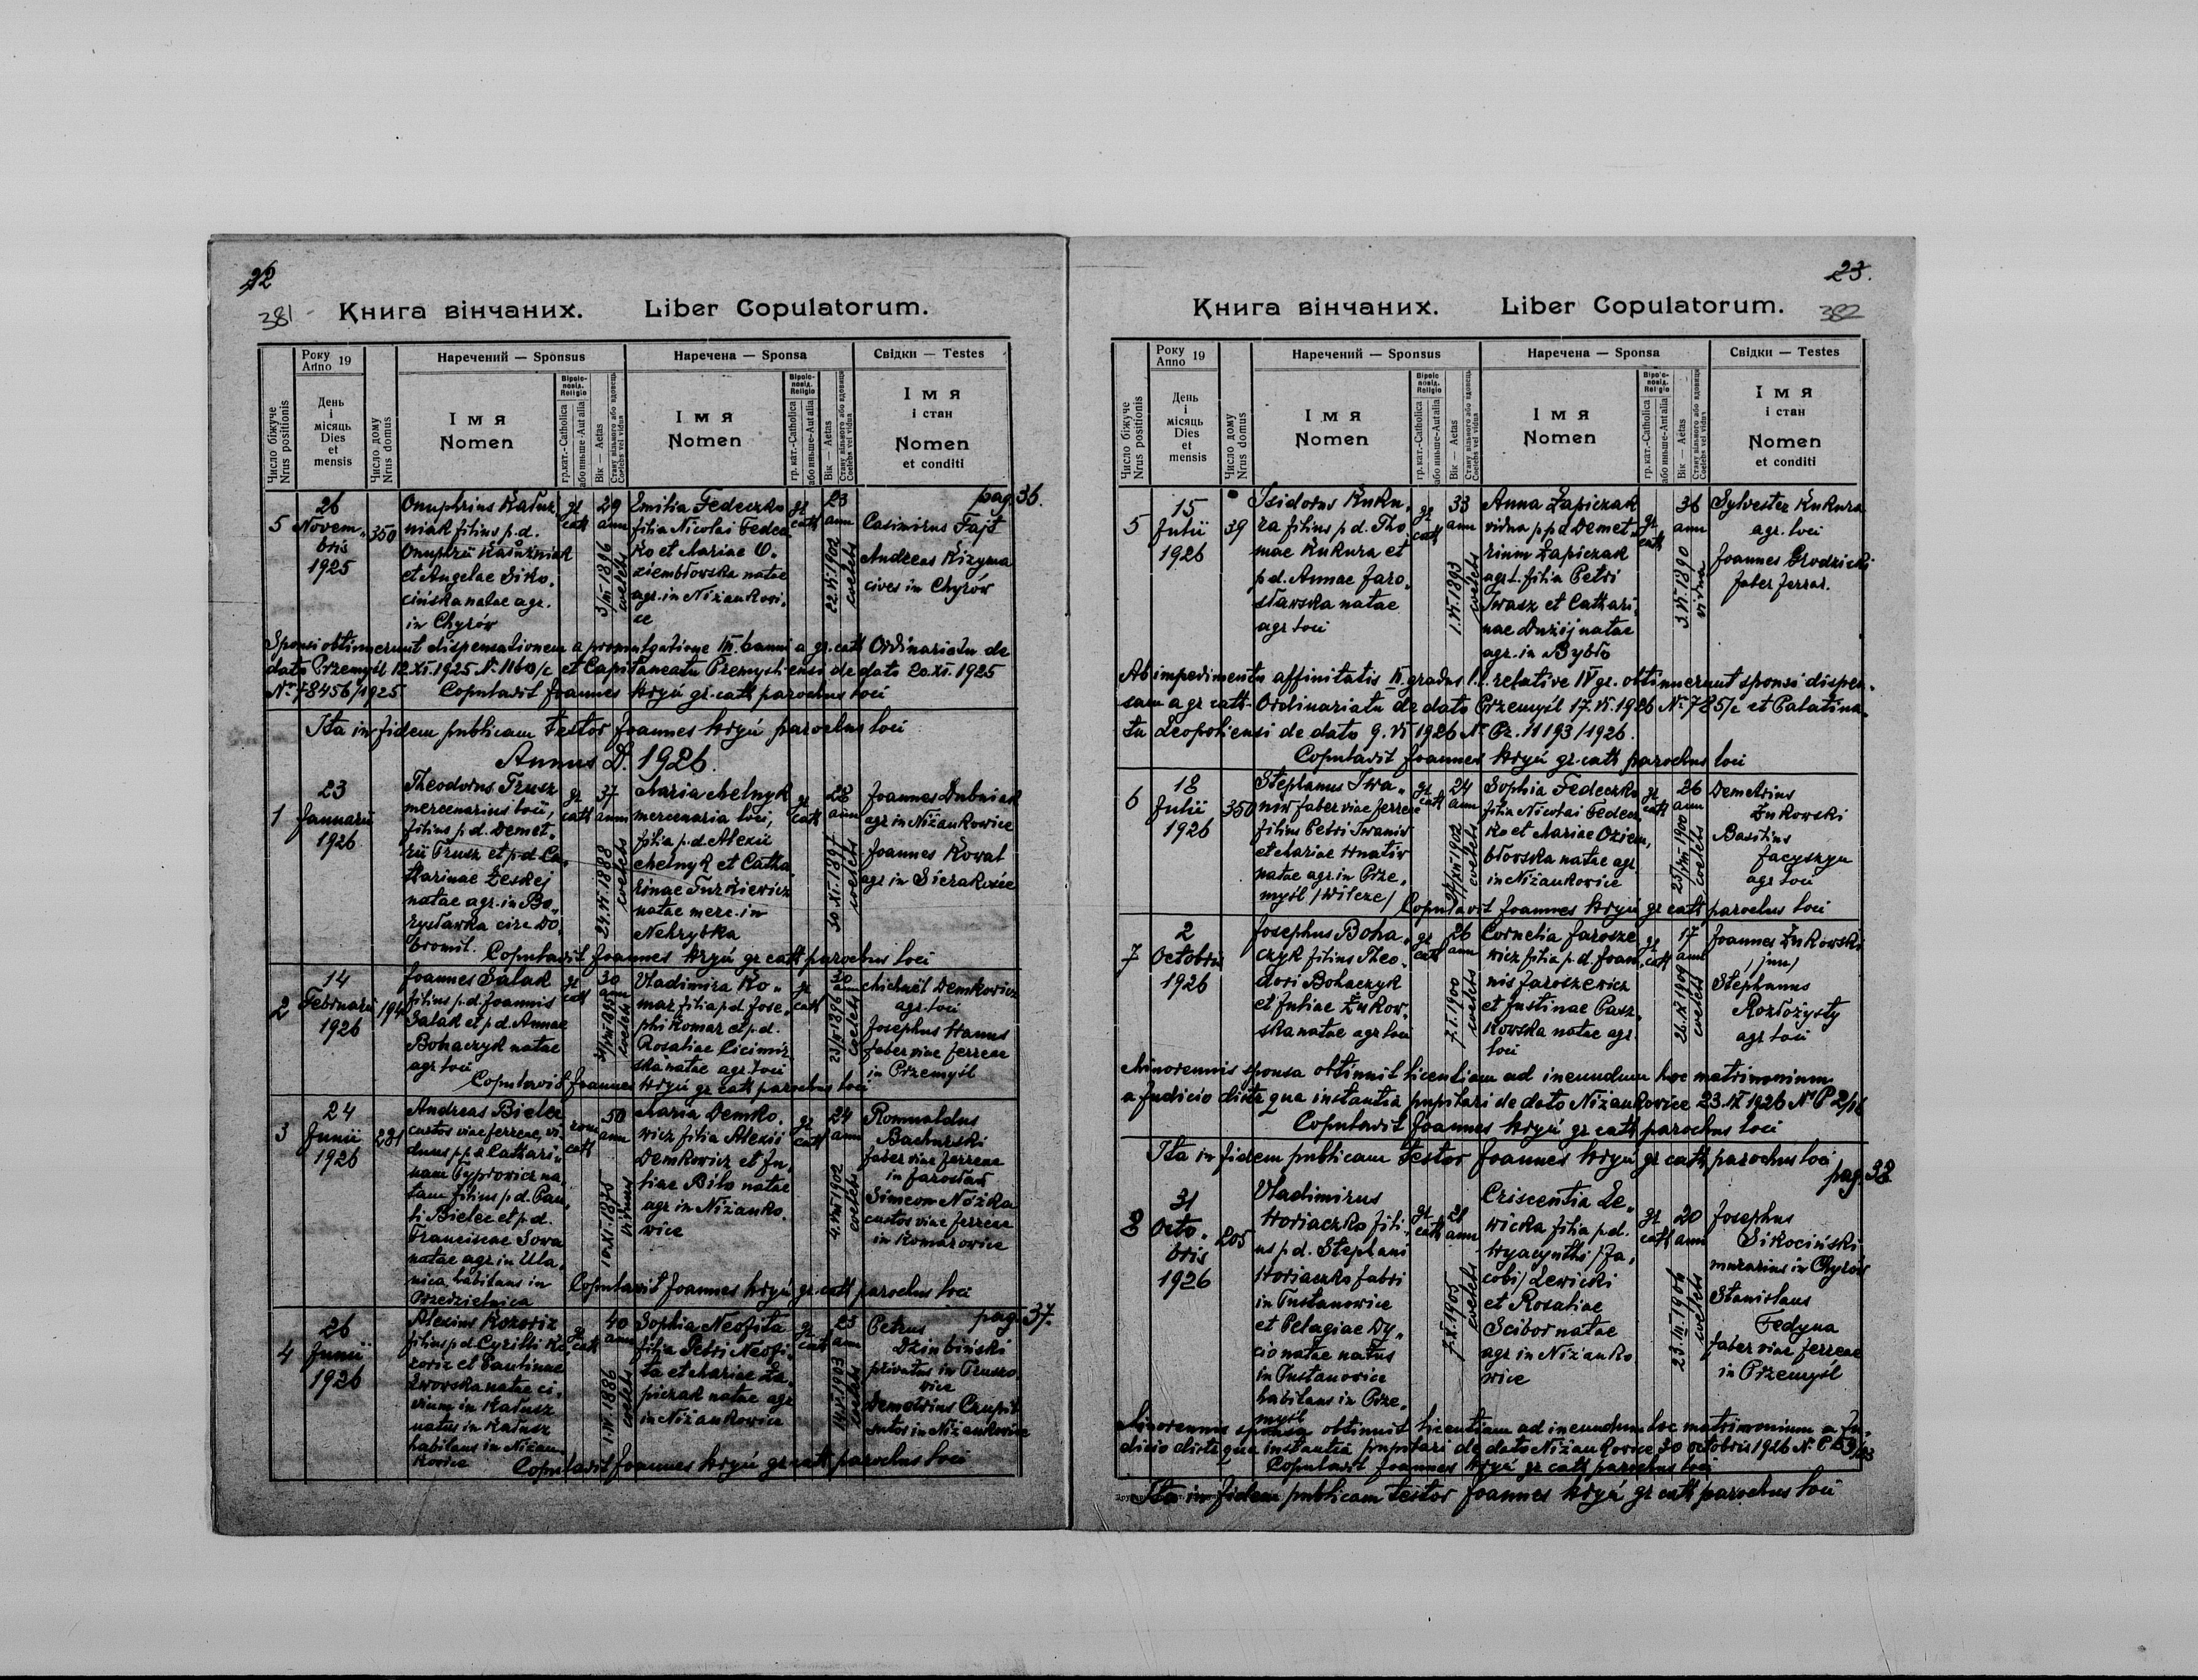 22
381
Книга вінчаних. Liber Copulatorum.
Число біжуче Nrus positionis
Року Anno 19
День і місяць Dies et mensis
Число дому Nrus domus
Наречений — Sponsus
Імя Nomen
Віроісповід. Religio
гр. кат.-Catholica або иньше-Aut alia
Вік — Aetas
Стану вільного або вдовець Coelebs vel vidus
Наречена — Sponsa
Імя Nomen
Віроісповід. Religio
гр. кат.-Catholica або иньше-Aut alia
Вік — Aetas
Стану вільного або вдовиця Coelebs vel vidus
Свідки — Testes
Імя і стан
Nomen et conditi
pag. 36.
5
26
Novem.
bris
1925
350
Onuphrius Kałuż
niak filius p.d.
Onuphrii Kałużniak
et Angelae Siko.
cińska natae agr.
in Chyrów
gr
cath
29
ann
3/III 1896
coelebs
Emilia Fedeczko
filia Nicolai Fedecz
ko et Mariae O.
ziembłowska natae
agr. in Niżankowi.
ce
gr
cath
23
ann
22.VI.1902
coelebs
Casimirus Fajt
Andreas Kizyma
cives in Chyrów
Sponsi obtinuerunt dispensationem a promulgatione III. banni a gr. cath Ordinariatu de
dato Przemyśl 12.XI.1925 N. 1160/c et Capitaneatu Premysliensi de dato 20.XI.1925
Nr 78456/1925 Copulavit Joannes Hryń gr. cath parochus loci
Ita in fidem publicam testor Joannes Hryń parochus loci
Annus D. 1926.
1
23
Januarii
1926
Theodorus Trusz
mercenarius loci,
filius p.d. Demet.
rii Trusz et p.d. Ca.
tharinae Leskej
natae agr. in Bo.
rysławka circ. Do.
bromil.
gr
cath
37
ann
24.VI.1888
coelebs
Maria Melnyk
mercenaria loci,
filia p.d. Alexii
Melnyk et Catha.
rinae Turkiewicz
natae merc. in
Nehrybka
gr
cath
28
ann
30.XI.1897
coelebs
Joannes Dubniak
agr in Niżankowice
Joannes Kowal
agr in Sierakośce
Copulavit Joannes Hryń gr cath parochus loci
2
14
Februarii
1926
194
Joannes Sałak
filius p.d. Joannis
Sałak et p.d. Annae
Bohaczyk natae
agr loci
gr
cath
30
ann
coelebs
Vladimira Ko„
mar filia p.d. Jose.
phi Komar et p.d.
Rosaliae Cicimir
ska natae agr. loci
gr
cath
30
ann
coelebs
Michaël Demkowicz
agr. loci
Josephus Hanus
faber viae ferreae
in Przemyśl
Copulavit Joannes Hryń gr cath parochus loci
3
24
Junii
1926
231
Andreas Bielec
custos viae ferreae, vi.
duus p.p.d. Cathari.
nam Typrowicz na.
tam filius p.d. Pau.
li Bielec et p.d.
Franciscae Sowa
natae agr. in Ula,
nica habitans in
Przedzielnica
rom
cath
50
ann
10.XI.1875
viduus
Maria Demko.
wicz filia Alexii
Demkowicz et Ju.
liae Biło natae
agr in Niżanko.
wice
gr
cath
24
ann
4.VIII 1902
coelebs
Romualdus
Bachurski
faber viae ferreae
in Jarosław
Simeon Nóżka
custos viae ferreae
in Komarowice
Copulavit Joannes Hryń gr. cath parochus loci
pag. 37.
4
26
Junii
1926
Alexius Kozoriz
filius p.d. Cyrilli Ko.
zoriz et Paulinae
Lworska natae ci.
vium in Kałusz
natus in Kałusz
habitans in Niżan
kowice
gr
cath
40
ann
1.IV 1886
coelebs
Sophia Neofita
filia Petri Neofi.
ta et Mariae Ła.
piczak natae agr
in Niżankowice
gr
cath
23
ann
coelebs
Petrus
Dzinbiński
privatus in Truszo
wice
Demetrius Czupil
sutor in Niżankowice
Copulavit Joannes Hryń gr cath parochus loci
23.
382
Книга вінчаних. Liber Copulatorum.
Число біжуче Nrus positionis
Року Anno 19
День і місяць Dies et mensis
Число дому Nrus domus
Наречений — Sponsus
Імя Nomen
Віроісповід. Religio
гр. кат.-Catholica або иньше-Aut alia
Вік — Aetas
Стану вільного або вдовець Coelebs vel vidus
Наречена — Sponsa
Імя Nomen
Віроісповід. Religio
гр. кат.-Catholica або иньше-Aut alia
Вік — Aetas
Стану вільного або вдовиця Coelebs vel vidus
Свідки — Testes
Імя і стан
Nomen et conditi
5
15
Julii
1926
39
Isidorus Kuku,
ra filius p.d. Tho
mae Kukura et
p.d. Annae Jaro.
sławska natae
agr loci
gr
cath
33
ann
1.VI.1893
coelebs
Anna Łapiczak
vidua p.p.d. Demet.
rium Łapiczak
agr. filia Petri
Iwasz et Cathari.
nae Duzij natae
agr. in Bybło
gr
cath
36
ann
3.VI.1890
vidua
Sylvester Kukura
agr. loci
Joannes Grodzicki
faber ferrar.
Ab impedimento affinitatis II. gradus l.l. relative IV gr. obtinuerunt sponsi dispen.
sam a gr cath. Ordinariatu de dato Przemyśl 17.VI.1926 Nr 785/c et Palatina.
tu Leopoliensi de dato 9.VI 1926 N. Pz. 11193/1926.
Copulavit Joannes Hryń gr. cath parochus loci
6
18
Julii
1926
350
Stephanus Iwa„
niw faber viae ferreae
filius Petri Iwaniw
et Mariae Hnatiw
natae agr. in Prze,
myśl /Wilcze/
gr
cath
24
ann
coelebs
Sophia Fedeczko
filia Nicolai Fedecz
ko et Mariae Oziem,
błowska natae agr
in Niżankowice
gr
cath
26
ann
coelebs
Demetrius
Żukowski
Basilius
Jacyszyn
agr loci
Copulavit Joannes Hryń gr cath parochus loci
7
2
Octobris
1926
Josephus Boha,
czyk filius Theo.
dori Bohaczyk
et Juliae Żukow.
ska natae agr loci
gr
cath
26
ann
7.I.1900
coelebs
Cornelia Jarosze
wicz filia p.d. Joan.
nis Jaroszewicz
et Justinae Pasz.
kowska natae agr.
loci
gr
cath
17
ann
26.IX 1909
coelebs
Joannes Żukowski
/jun/
Stephanus
Rozłożysty
agr loci
Minorennis sponsa obtinuit licentiam ad ineundum hoc matrimonium
a Judicio distr qua instantia pupilari de dato Niżankowice 23.IX 1926 Nr P
Copulavit Joannes Hryń gr cath parochus loci
Ita in fidem publicam testor Joannes Hryń gr cath parochus loci
pag. 38
8
31
Octo.
bris
1926
205
Vladimirus
Horiaczko fili.
us p.d. Stephani
Horiaczko fabri
in Tustanowice
et Pelagiae Dy„
cio natae natus
in Tustanowice
habitans in Prze,
myśl
gr
cath
21
ann
7.X.1905
coelebs
Criscentia Le„
wicka filia p.d.
Hyacynthi /Ja,
cobi/ Lewicki
et Rosaliae
Scibor natae
agr in Niżanko
wice
gr
cath
20
ann
23.III.1906
coelebs
Josephus
Sikociński
murarius in Chyrów
Stanislaus
Fedyna
faber viae ferreae
in Przemyśl
Minorennis sponsa obtinuit licentiam ad ineundum hoc matrimonium a Ju.
dicio distr qua instantia pupilari de dato Niżankowice 30 octobris 1926 N. P
Copulavit Joannes Hryń gr cath parochus loci
Ita in fidem publicam testor Joannes Hryń gr cath parochus loci